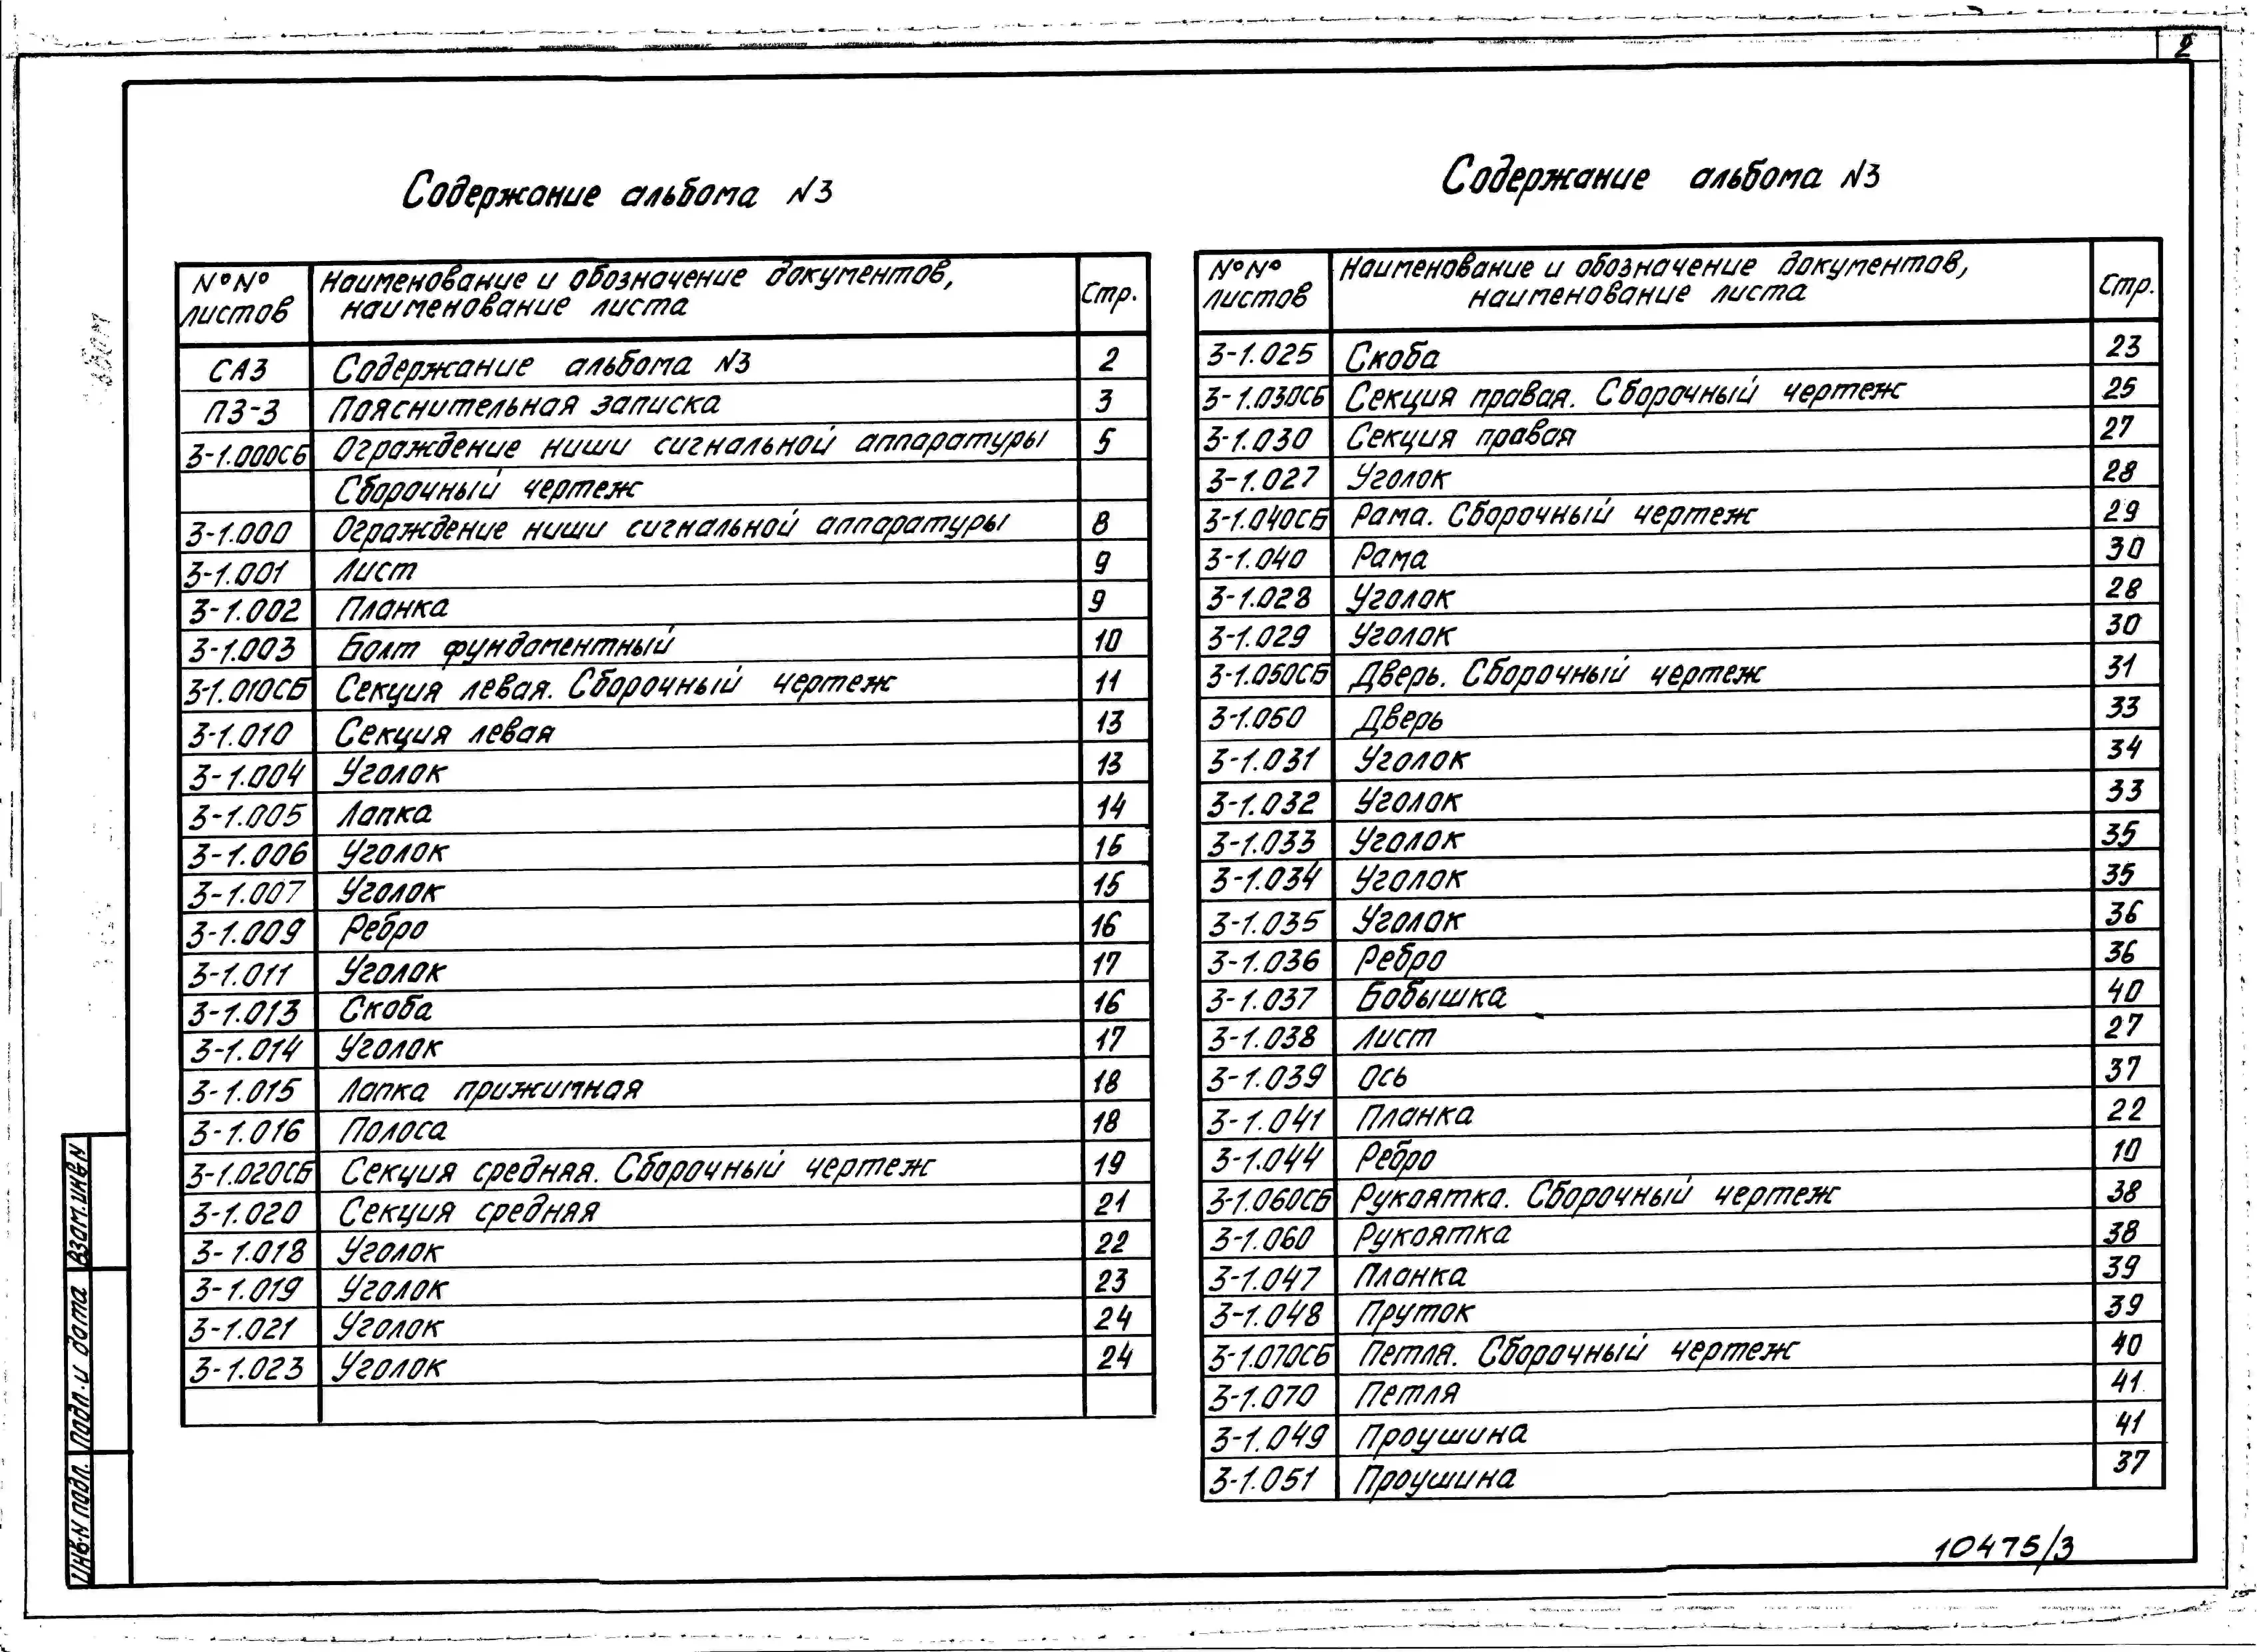 2
Содержание альбома №3
№ №
листов
Наименование и обозначение документов,
наименование листа
Стр.
СА3 Содержание альбома №3 2
ПЗ-3 Пояснительная записка 3
3-1.000СБ Ограждение ниши сигнальной аппаратуры 5
Сборочный чертеж
3-1.000 Ограждение ниши сигнальной аппаратуры 8
3-1.001 Лист 9
3-1.002 Планка 9
3-1.003 Болт фундаментный 10
3-1.010СБ Секция левая. Сборочный чертеж 11
3-1.010 Секция левая 13
3-1.004 Уголок 13
3-1.005 Лапка 14
3-1.006 Уголок 15
3-1.007 Уголок 15
3-1.009 Ребро 16
3-1.011 Уголок 17
3-1.013 Скоба 16
3-1.014 Уголок 17
3-1.015 Лапка прижимная 18
3-1.016 Полоса 18
3-1.020СБ Секция средняя. Сборочный чертеж 19
3-1.020 Секция средняя 21
3-1.018 Уголок 22
3-1.019 Уголок 23
3-1.021 Уголок 24
3-1.023 Уголок 24
Содержание альбома №3
№ №
листов
Наименование и обозначение документов,
наименование листа
Стр.
3-1.025 Скоба 23
3-1.030СБ Секция правая. Сборочный чертеж 25
3-1.030 Секция правая 27
3-1.027 Уголок 28
3-1.040СБ Рама. Сборочный чертеж 29
3-1.040 Рама 30
3-1.028 Уголок 28
3-1.029 Уголок 30
3-1.050СБ Дверь. Сборочный чертеж 31
3-1.050 Дверь 33
3-1.031 Уголок 34
3-1.032 Уголок 33
3-1.033 Уголок 35
3-1.034 Уголок 35
3-1.035 Уголок 36
3-1.036 Ребро 36
3-1.037 Бобышка 40
3-1.038 Лист 27
3-1.039 Ось 37
3-1.041 Планка 22
3-1.044 Ребро 10
3-1.060СБ Рукоятка. Сборочный чертеж 38
3-1.060 Рукоятка 38
3-1.047 Планка 39
3-1.048 Пруток 39
3-1.070СБ Петля. Сборочный чертеж 40
3-1.070 Петля 41
3-1.049 Проушина 41
3-1.051 Проушина 37
Взам.инв.N
Подп. и дата
Инв.N подл.
10475/3